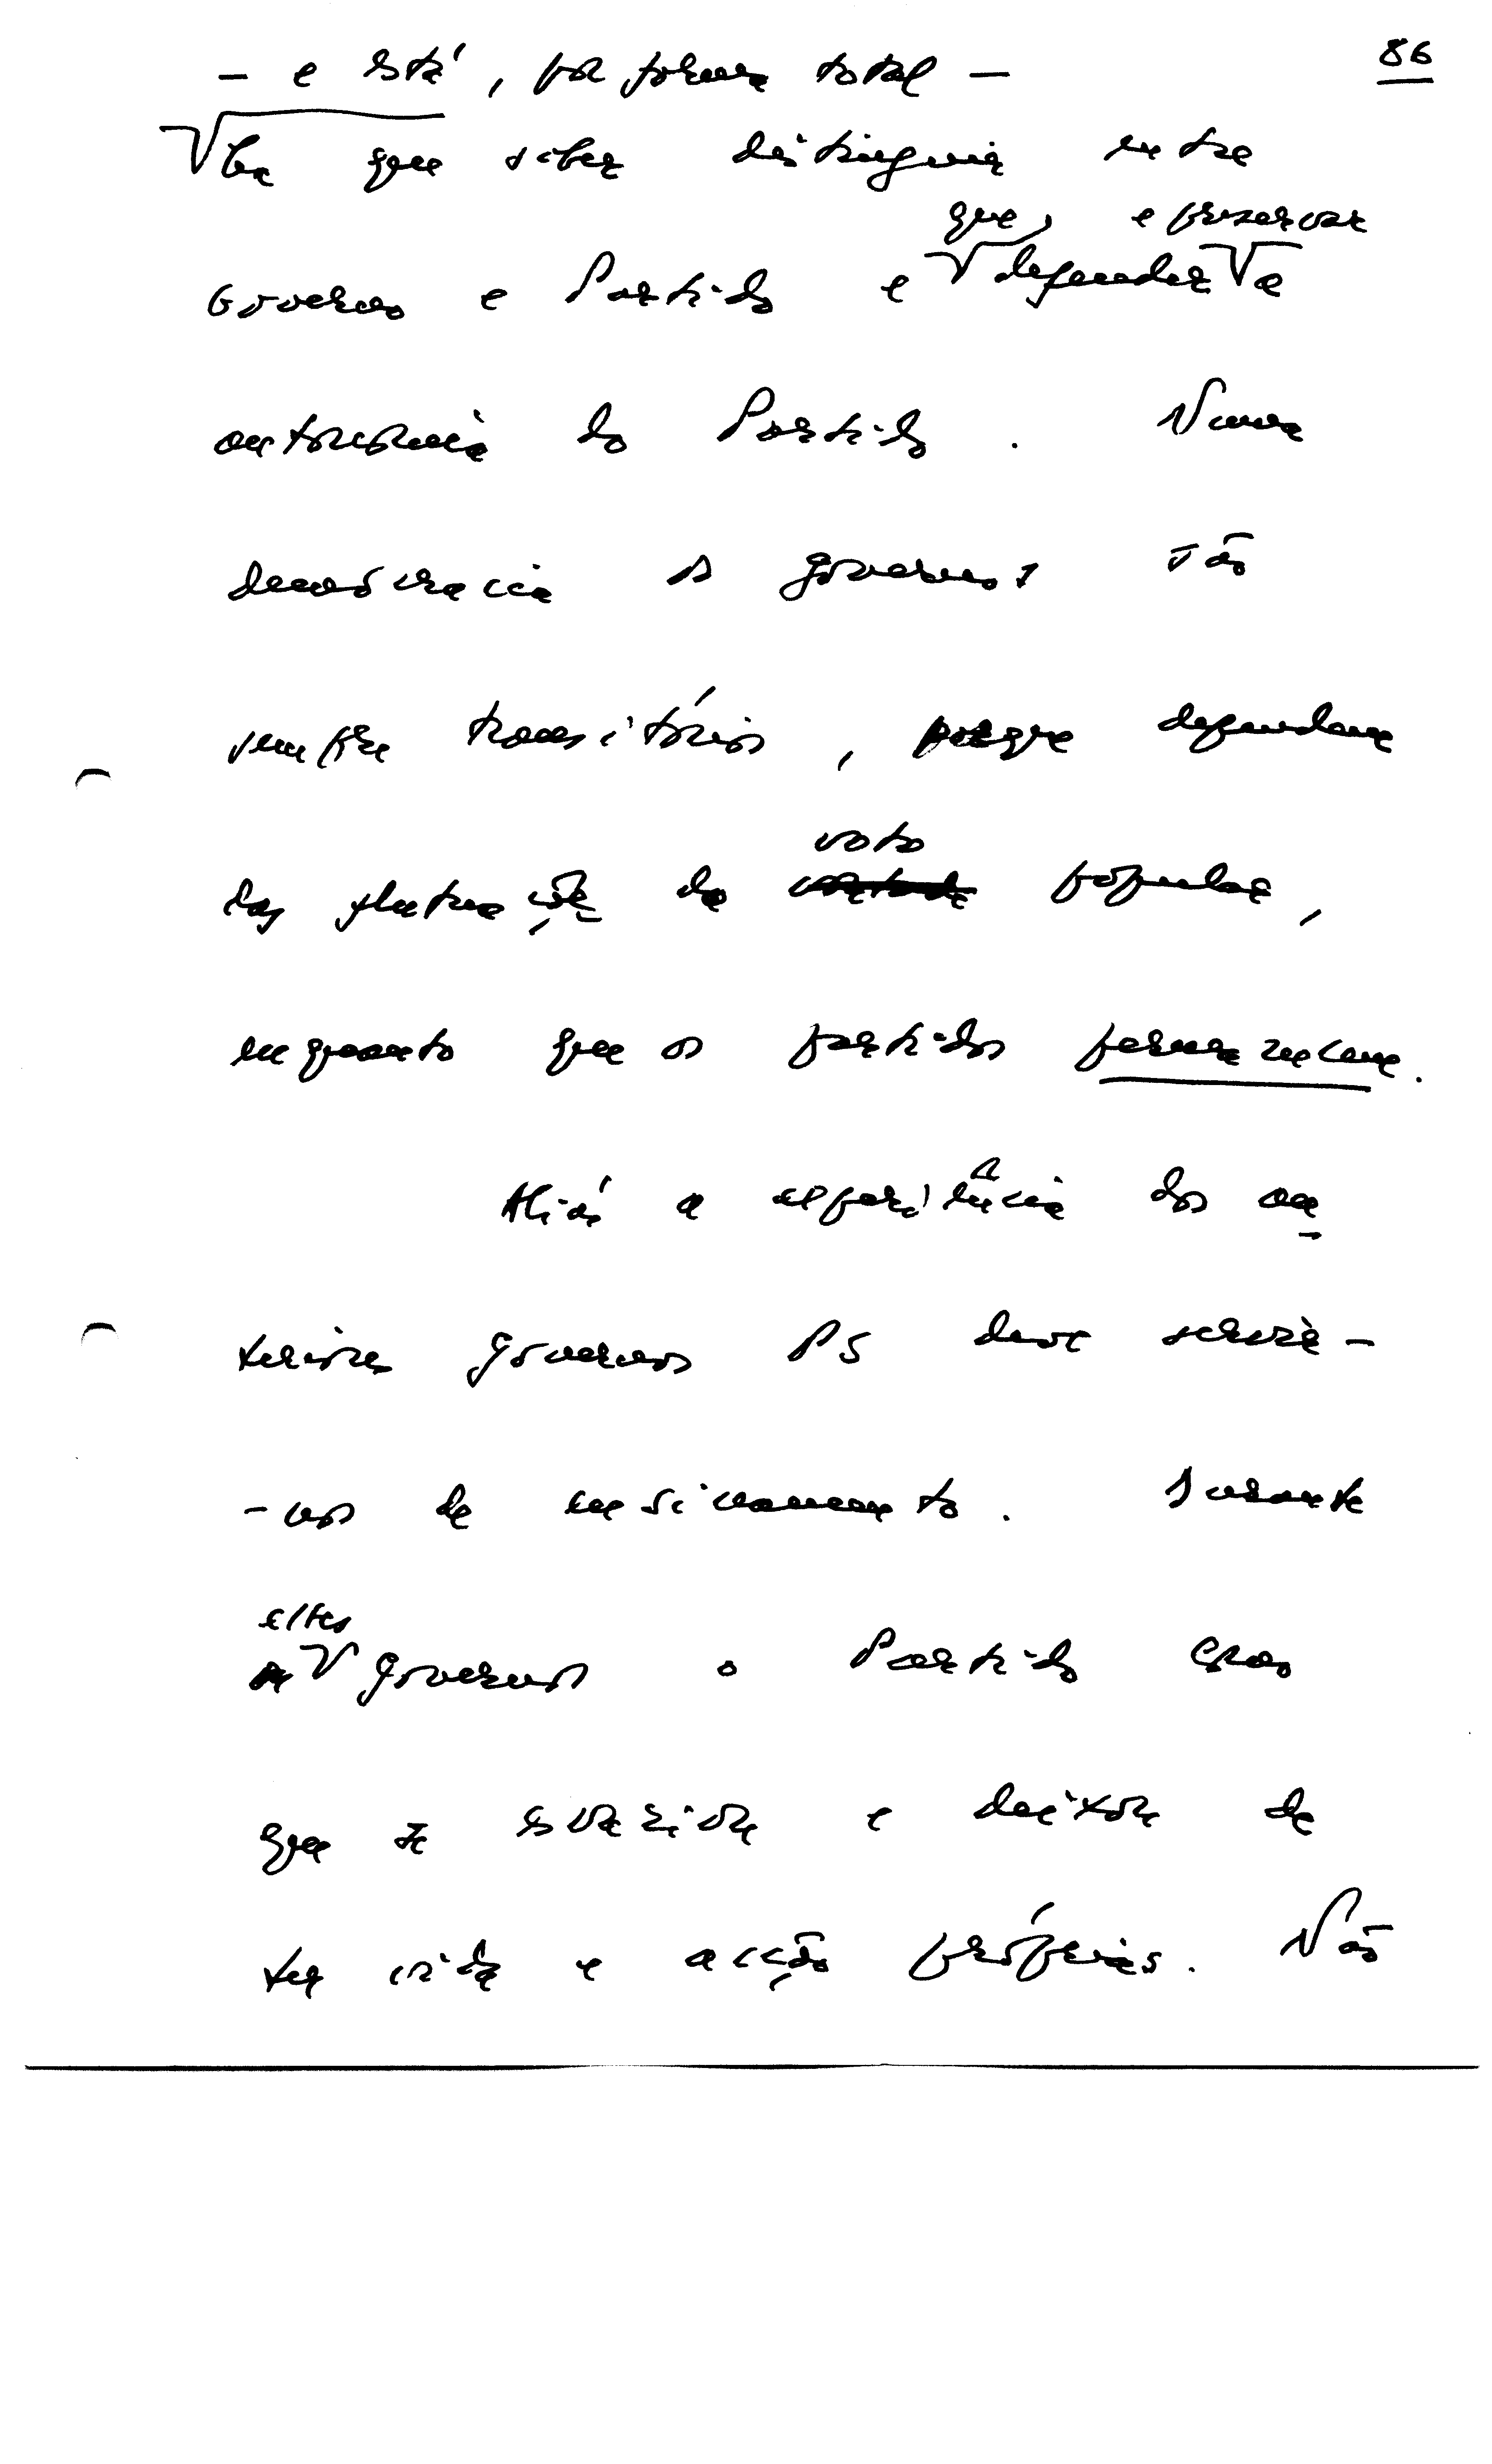 86
- e está, por forma total -
há que saber distinguir entre
que, e preservar
Governo e Partido e defender a
autonomia do Partido. Numa
democracia os governos são
sempre transitórios, porque dependem
das flutuações do voto popular,
enquanto que os partidos permanecem.
Aliás a experiência dos an-
teriores governos PS deve servir-
-nos de ensinamento. Durante
estes
governos o Partido como
que se esvaziou e deixou de
ter vida e acção próprias. Não